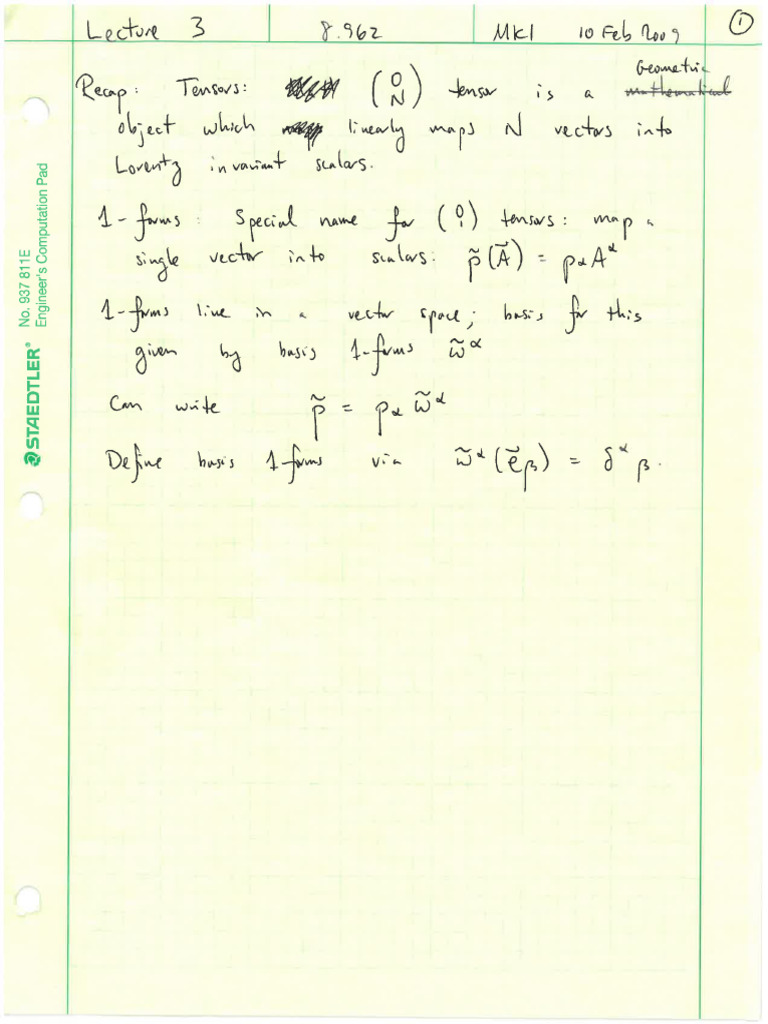 Lecture 3 8.962 MKI 10 Feb 2009 1
Geometric
Recap: Tensors: (0 N) tensor is a mathematical
object which linearly maps N vectors into
Lorentz invariant scalars.
1-forms: Special name for (0 1) tensors: map a
single vector into scalars: p̃(Ã) = pαAᵅ
1-forms live in a vector space; basis for this
given by basis 1-forms ω̃ᵅ
Can write p̃ = pα ω̃ᵅ
Define basis 1-forms via ω̃ᵅ(ẽβ) = δᵅβ.
No. 937 811E
Engineer's Computation Pad
STAEDTLER®